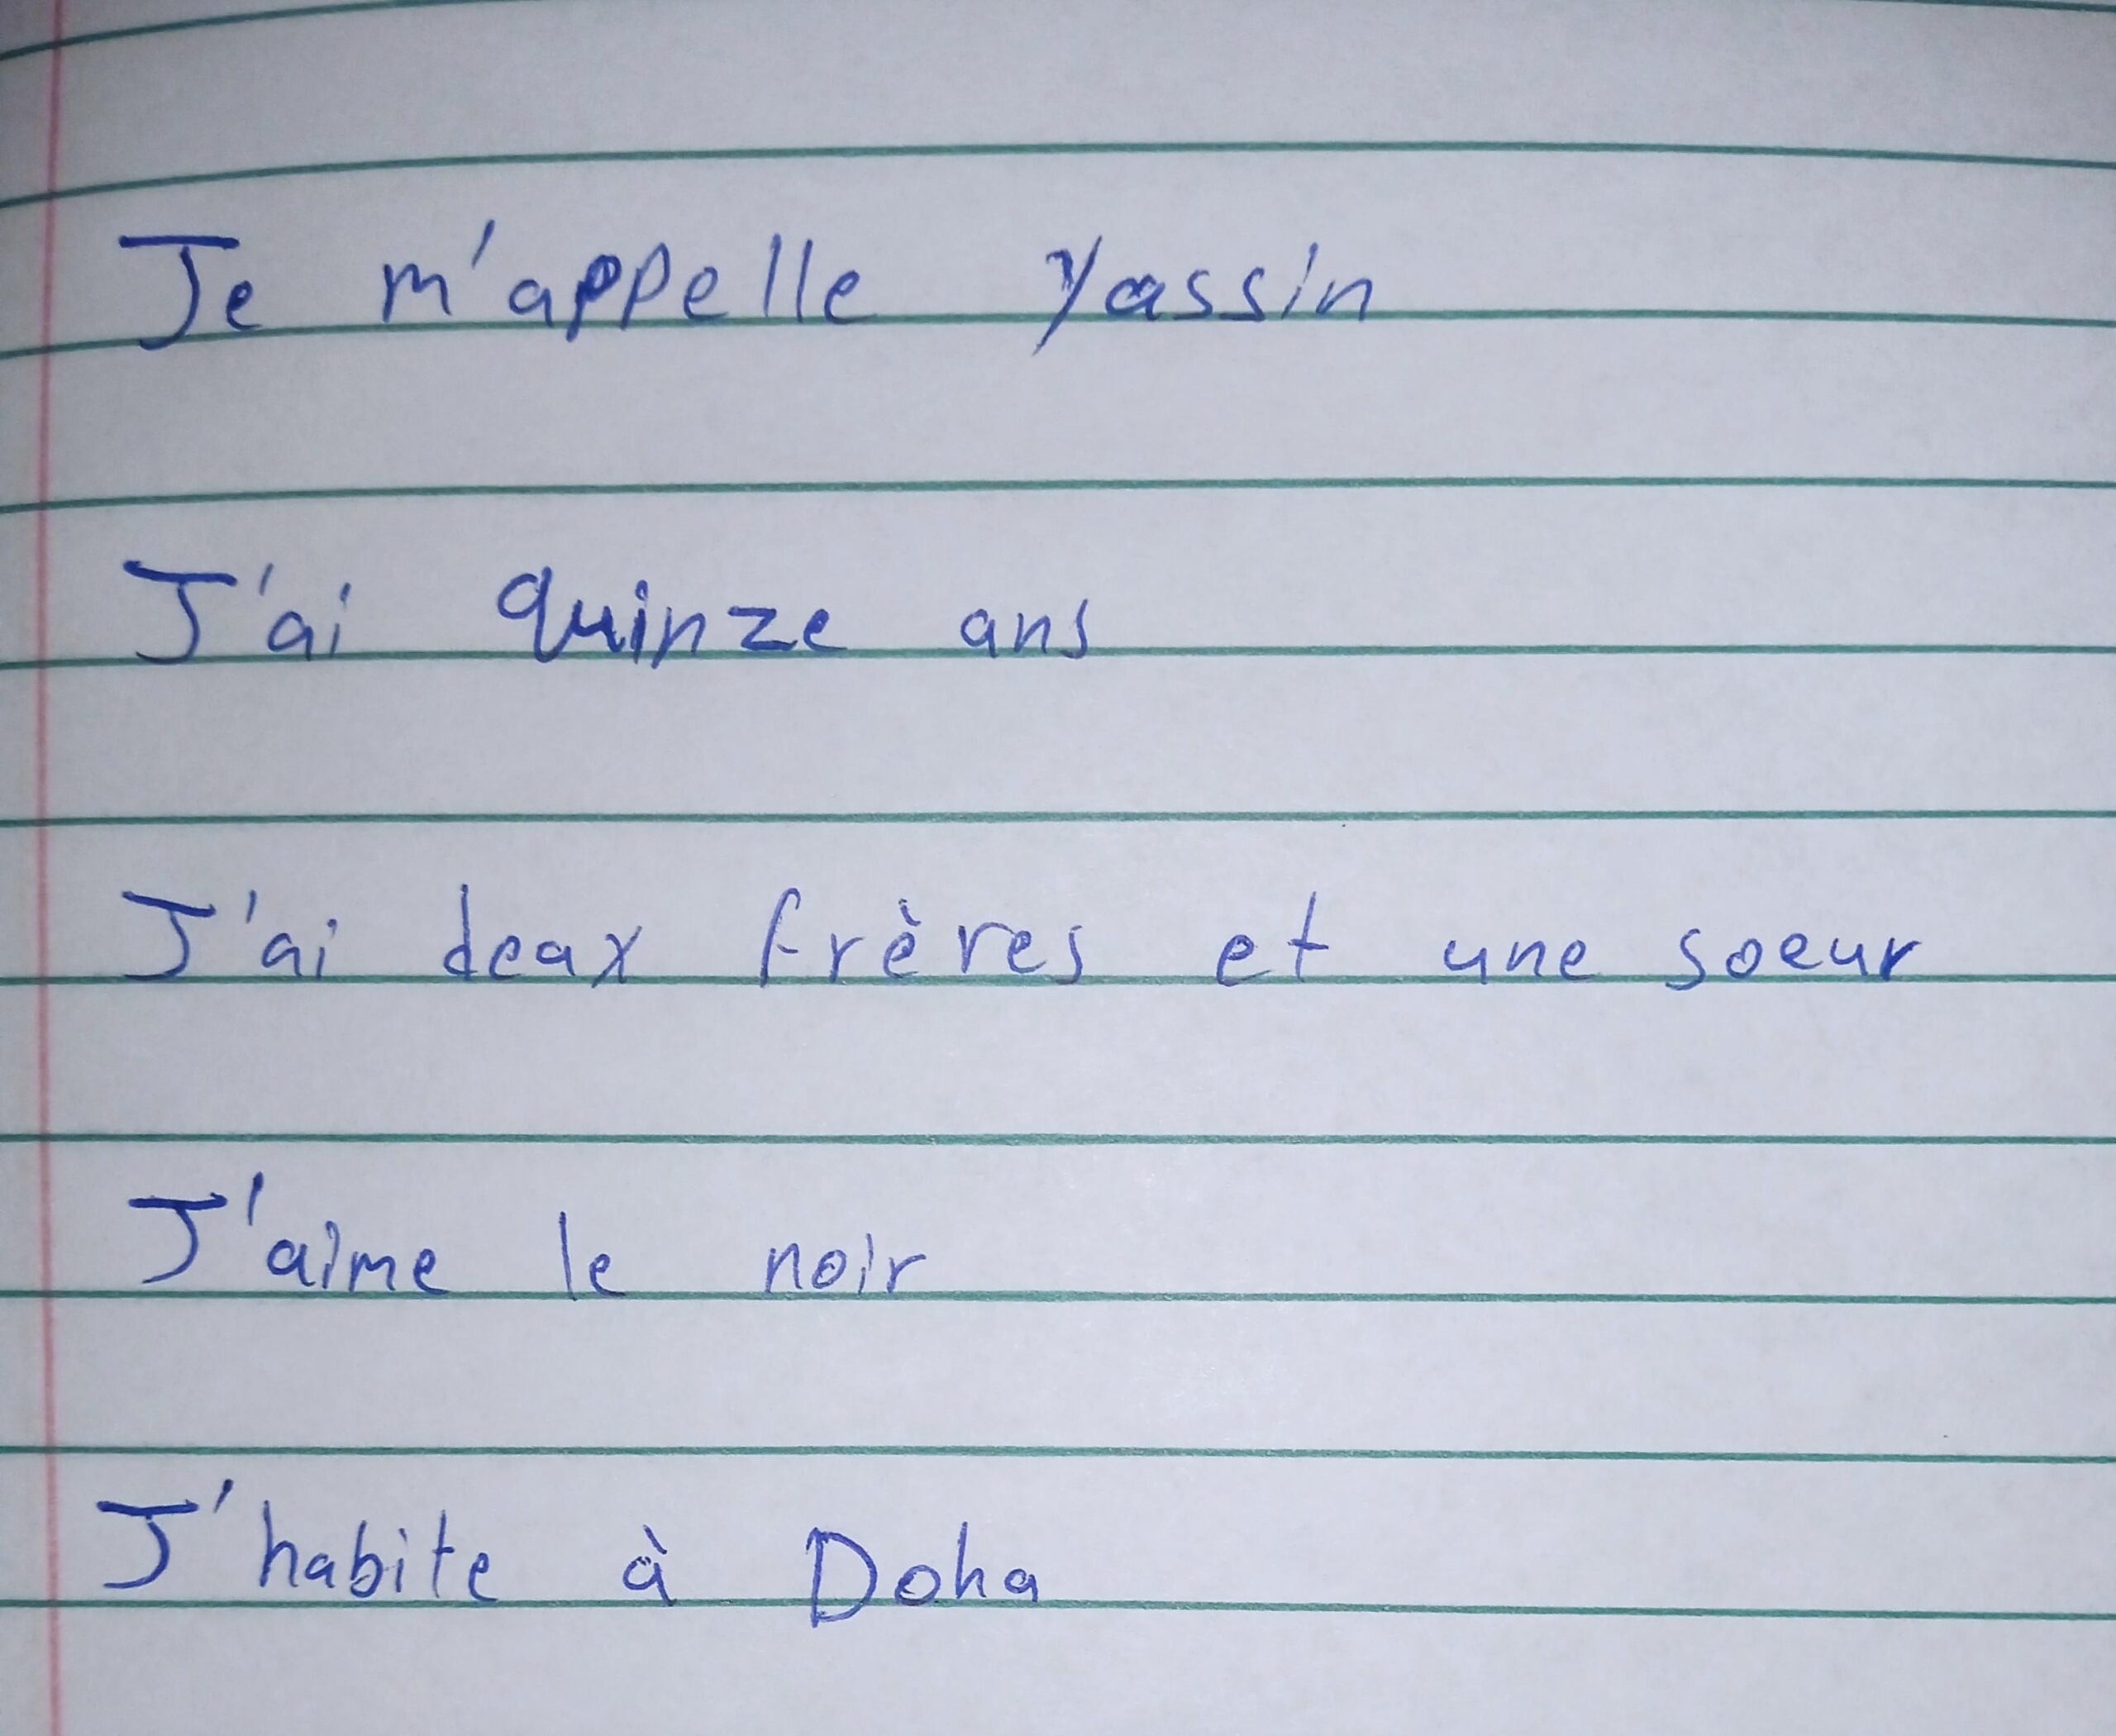 Je m'appelle Yassin
J'ai quinze ans
J'ai deux frères et une soeur
J'aime le noir
J'habite à Doha